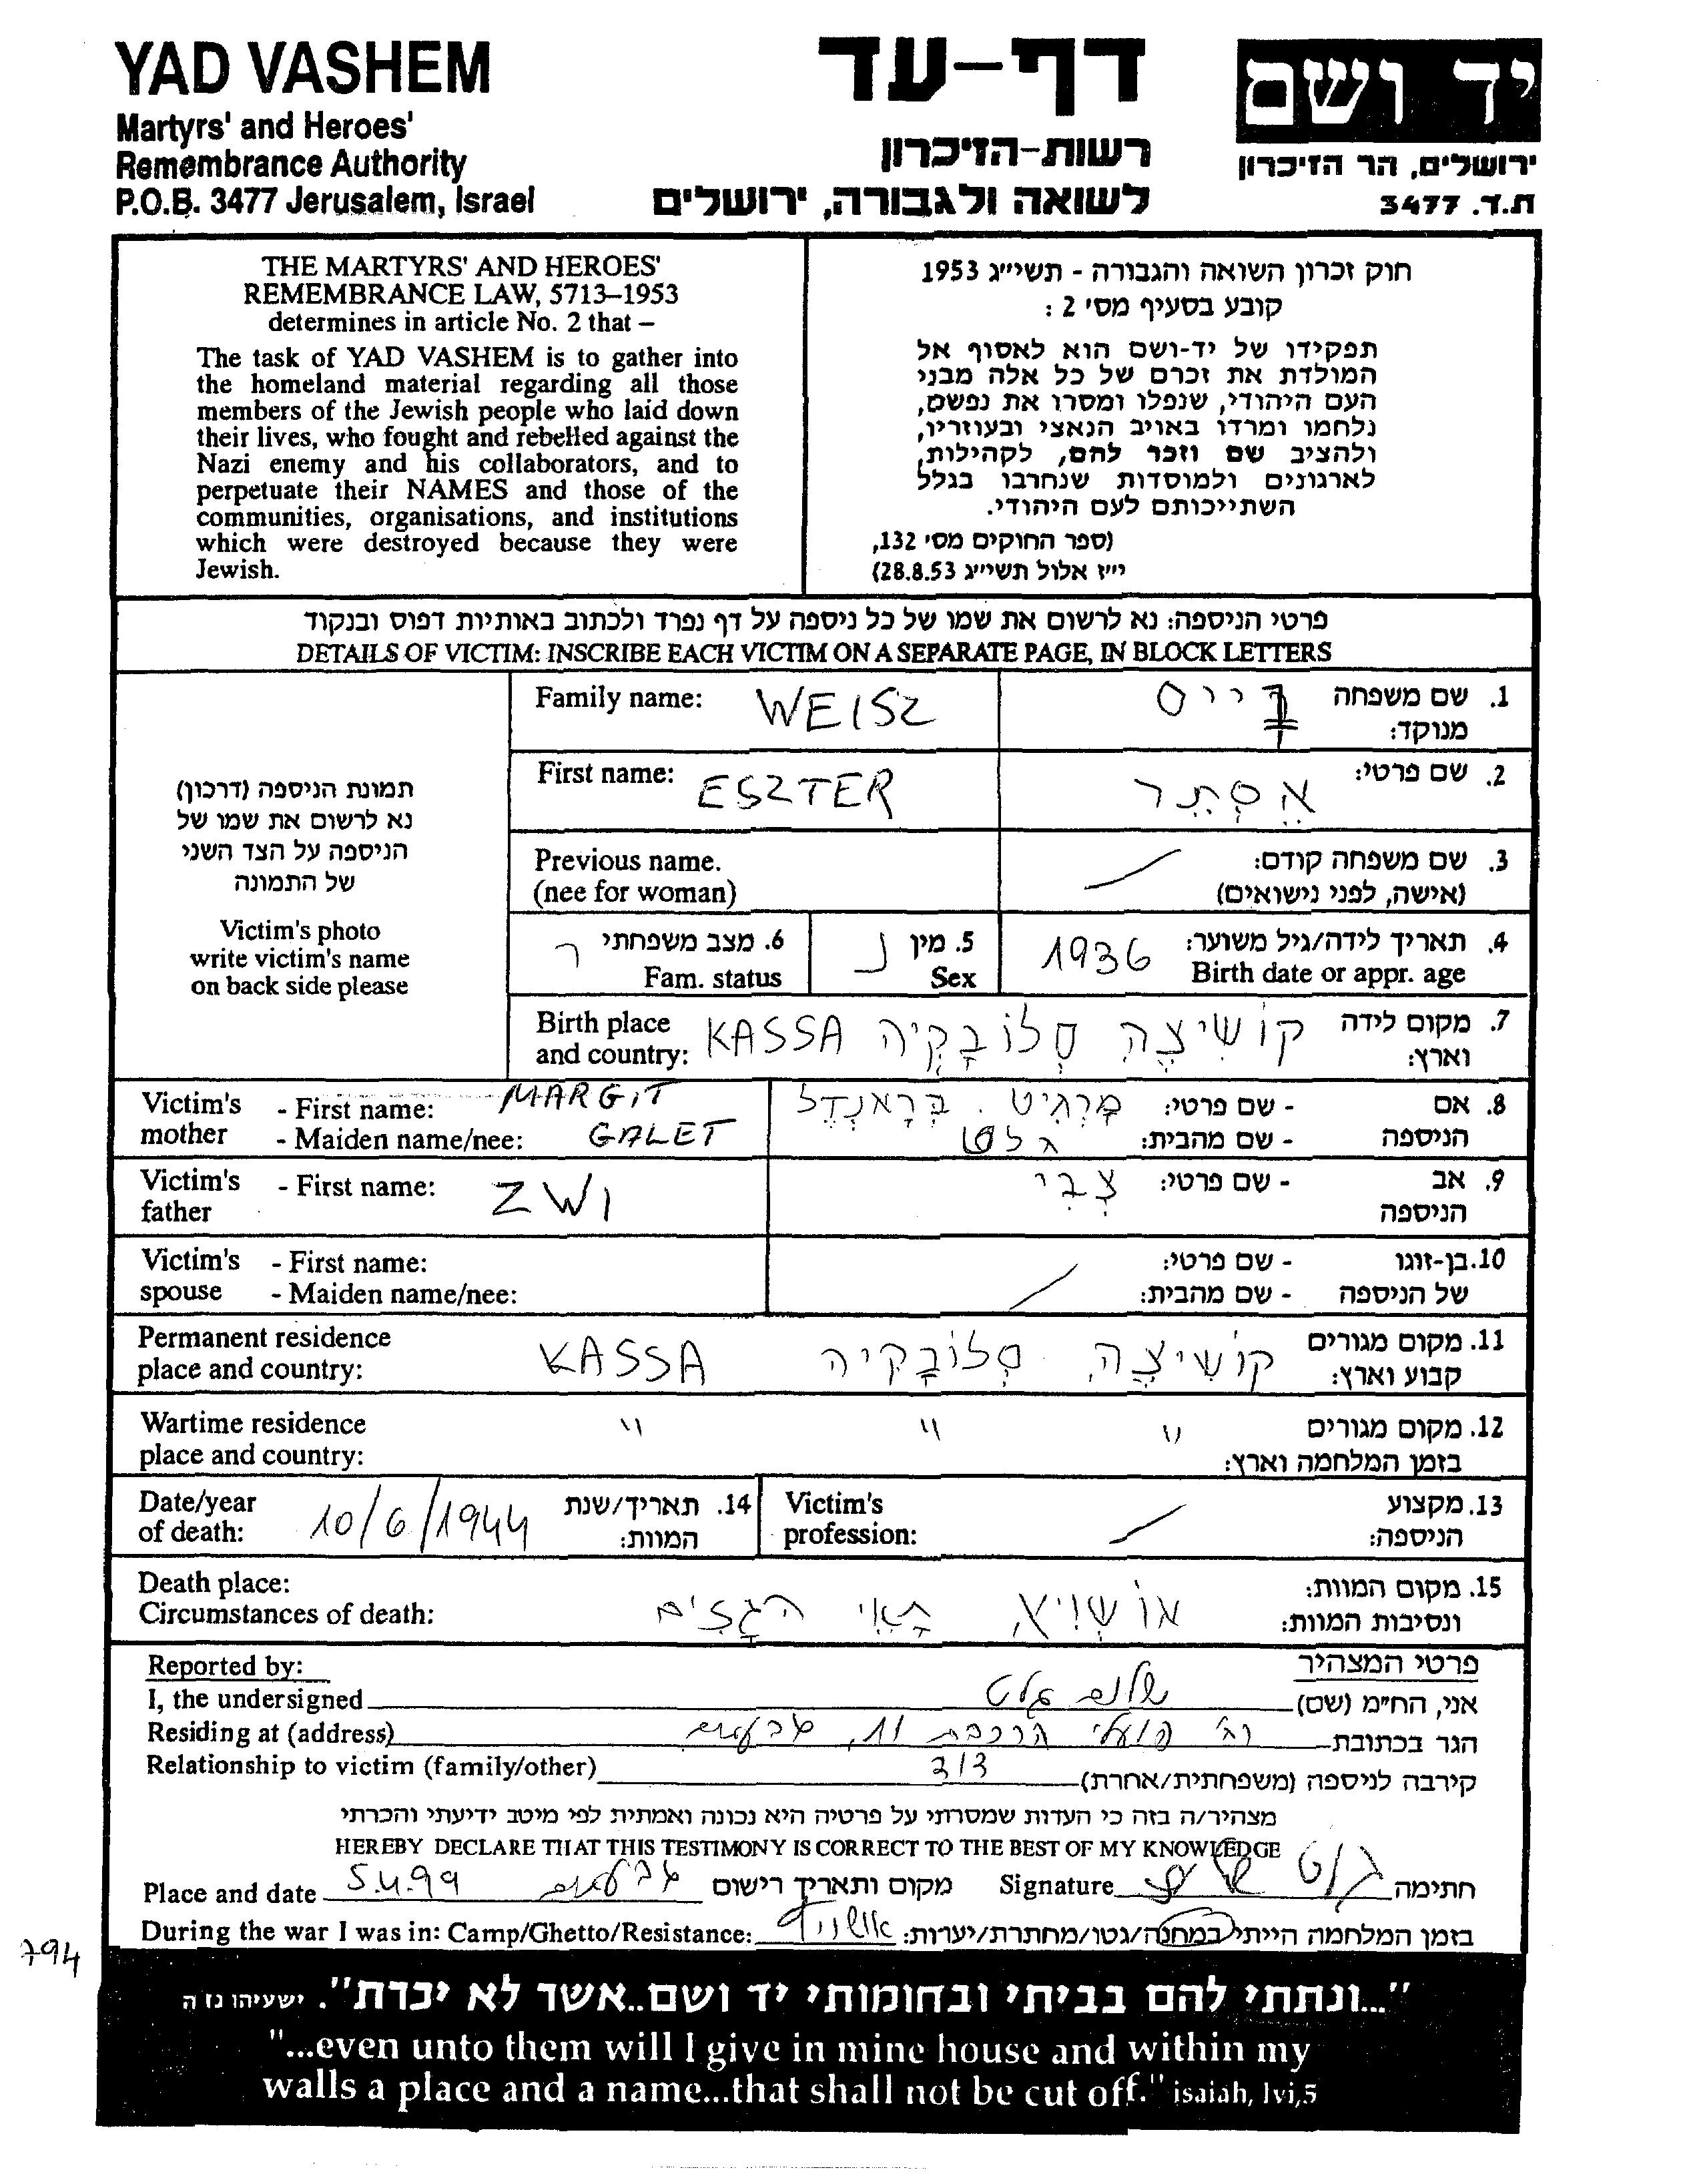 YAD VASHEM
Martyrs' and Heroes'
Remembrance Authority
P.O.B. 3477 Jerusalem, Israel
דף-עד
רשות-הזיכרון
לשואה ולגבורה, ירושלים
יד ושם
ירושלים, הר הזיכרון
ת.ד. 3477
THE MARTYRS' AND HEROES'
REMEMBRANCE LAW, 5713–1953
determines in article No. 2 that –
The task of YAD VASHEM is to gather into
the homeland material regarding all those
members of the Jewish people who laid down
their lives, who fought and rebelled against the
Nazi enemy and his collaborators, and to
perpetuate their NAMES and those of the
communities, organisations, and institutions
which were destroyed because they were
Jewish.
חוק זכרון השואה והגבורה - תשי״ג 1953
קובע בסעיף מס׳ 2 :
תפקידו של יד-ושם הוא לאסוף אל
המולדת את זכרם של כל אלה מבני
העם היהודי, שנפלו ומסרו את נפשם,
נלחמו ומרדו באויב הנאצי ובעוזריו,
ולהציב שם וזכר להם, לקהילות,
לארגונים ולמוסדות שנחרבו בגלל
השתייכותם לעם היהודי.
(ספר החוקים מס׳ 132,
י״ז אלול תשי״ג 28.8.53)
פרטי הניספה: נא לרשום את שמו של כל ניספה על דף נפרד ולכתוב באותיות דפוס ובנקוד
DETAILS OF VICTIM: INSCRIBE EACH VICTIM ON A SEPARATE PAGE, IN BLOCK LETTERS
תמונת הניספה (דרכון)
נא לרשום את שמו של
הניספה על הצד השני
של התמונה
Victim's photo
write victim's name
on back side please
Family name: WEISZ
1. שם משפחה מנוקד: וייס
First name: ESZTER
2. שם פרטי: אֶסְתֵּר
Previous name.
(nee for woman)
3. שם משפחה קודם:
(אישה, לפני נישואים)
4. תאריך לידה/גיל משוער: 1936
Birth date or appr. age
5. מין נ
Sex
6. מצב משפחתי ר
Fam. status
Birth place
and country: KASSA
7. מקום לידה וארץ: קושיצה סלובקיה
Victim's mother - First name: MARGiT
- Maiden name/nee: GALET
8. אם הניספה - שם פרטי: מרגיט . בראנדל
- שם מהבית: גלט
Victim's father - First name: ZWI
9. אב הניספה - שם פרטי: צבי
Victim's spouse - First name:
- Maiden name/nee:
10. בן-זוגו של הניספה - שם פרטי:
- שם מהבית:
Permanent residence
place and country: KASSA
11. מקום מגורים קבוע וארץ: קושיצה סלובקיה
Wartime residence
place and country: " " "
12. מקום מגורים
בזמן המלחמה וארץ:
Date/year
of death: 10/6/1944
14. תאריך/שנת
המוות:
Victim's
profession:
13. מקצוע
הניספה:
Death place:
Circumstances of death:
15. מקום המוות:
ונסיבות המוות: אושויץ תאי הגזים
Reported by:
פרטי המצהיר
I, the undersigned שלום גלט אני, הח״מ (שם)
Residing at (address) רח' פועלי הרכבת 11, גבעתיים הגר בכתובת
Relationship to victim (family/other) דוד קירבה לניספה (משפחתית/אחרת)
מצהיר/ה בזה כי העדות שמסרתי על פרטיה היא נכונה ואמתית לפי מיטב ידיעתי והכרתי
HEREBY DECLARE THAT THIS TESTIMONY IS CORRECT TO THE BEST OF MY KNOWLEDGE
Place and date 5.4.99 גבעתיים מקום ותאריך רישום Signature גלט חתימה
During the war I was in: Camp/Ghetto/Resistance: אושויץ בזמן המלחמה הייתי במחנה/גטו/מחתרת/יערות:
794
"...ונתתי להם בביתי ובחומותי יד ושם..אשר לא יכרת". ישעיהו נו ה
"...even unto them will I give in mine house and within my
walls a place and a name...that shall not be cut off." isaiah, lvi,5